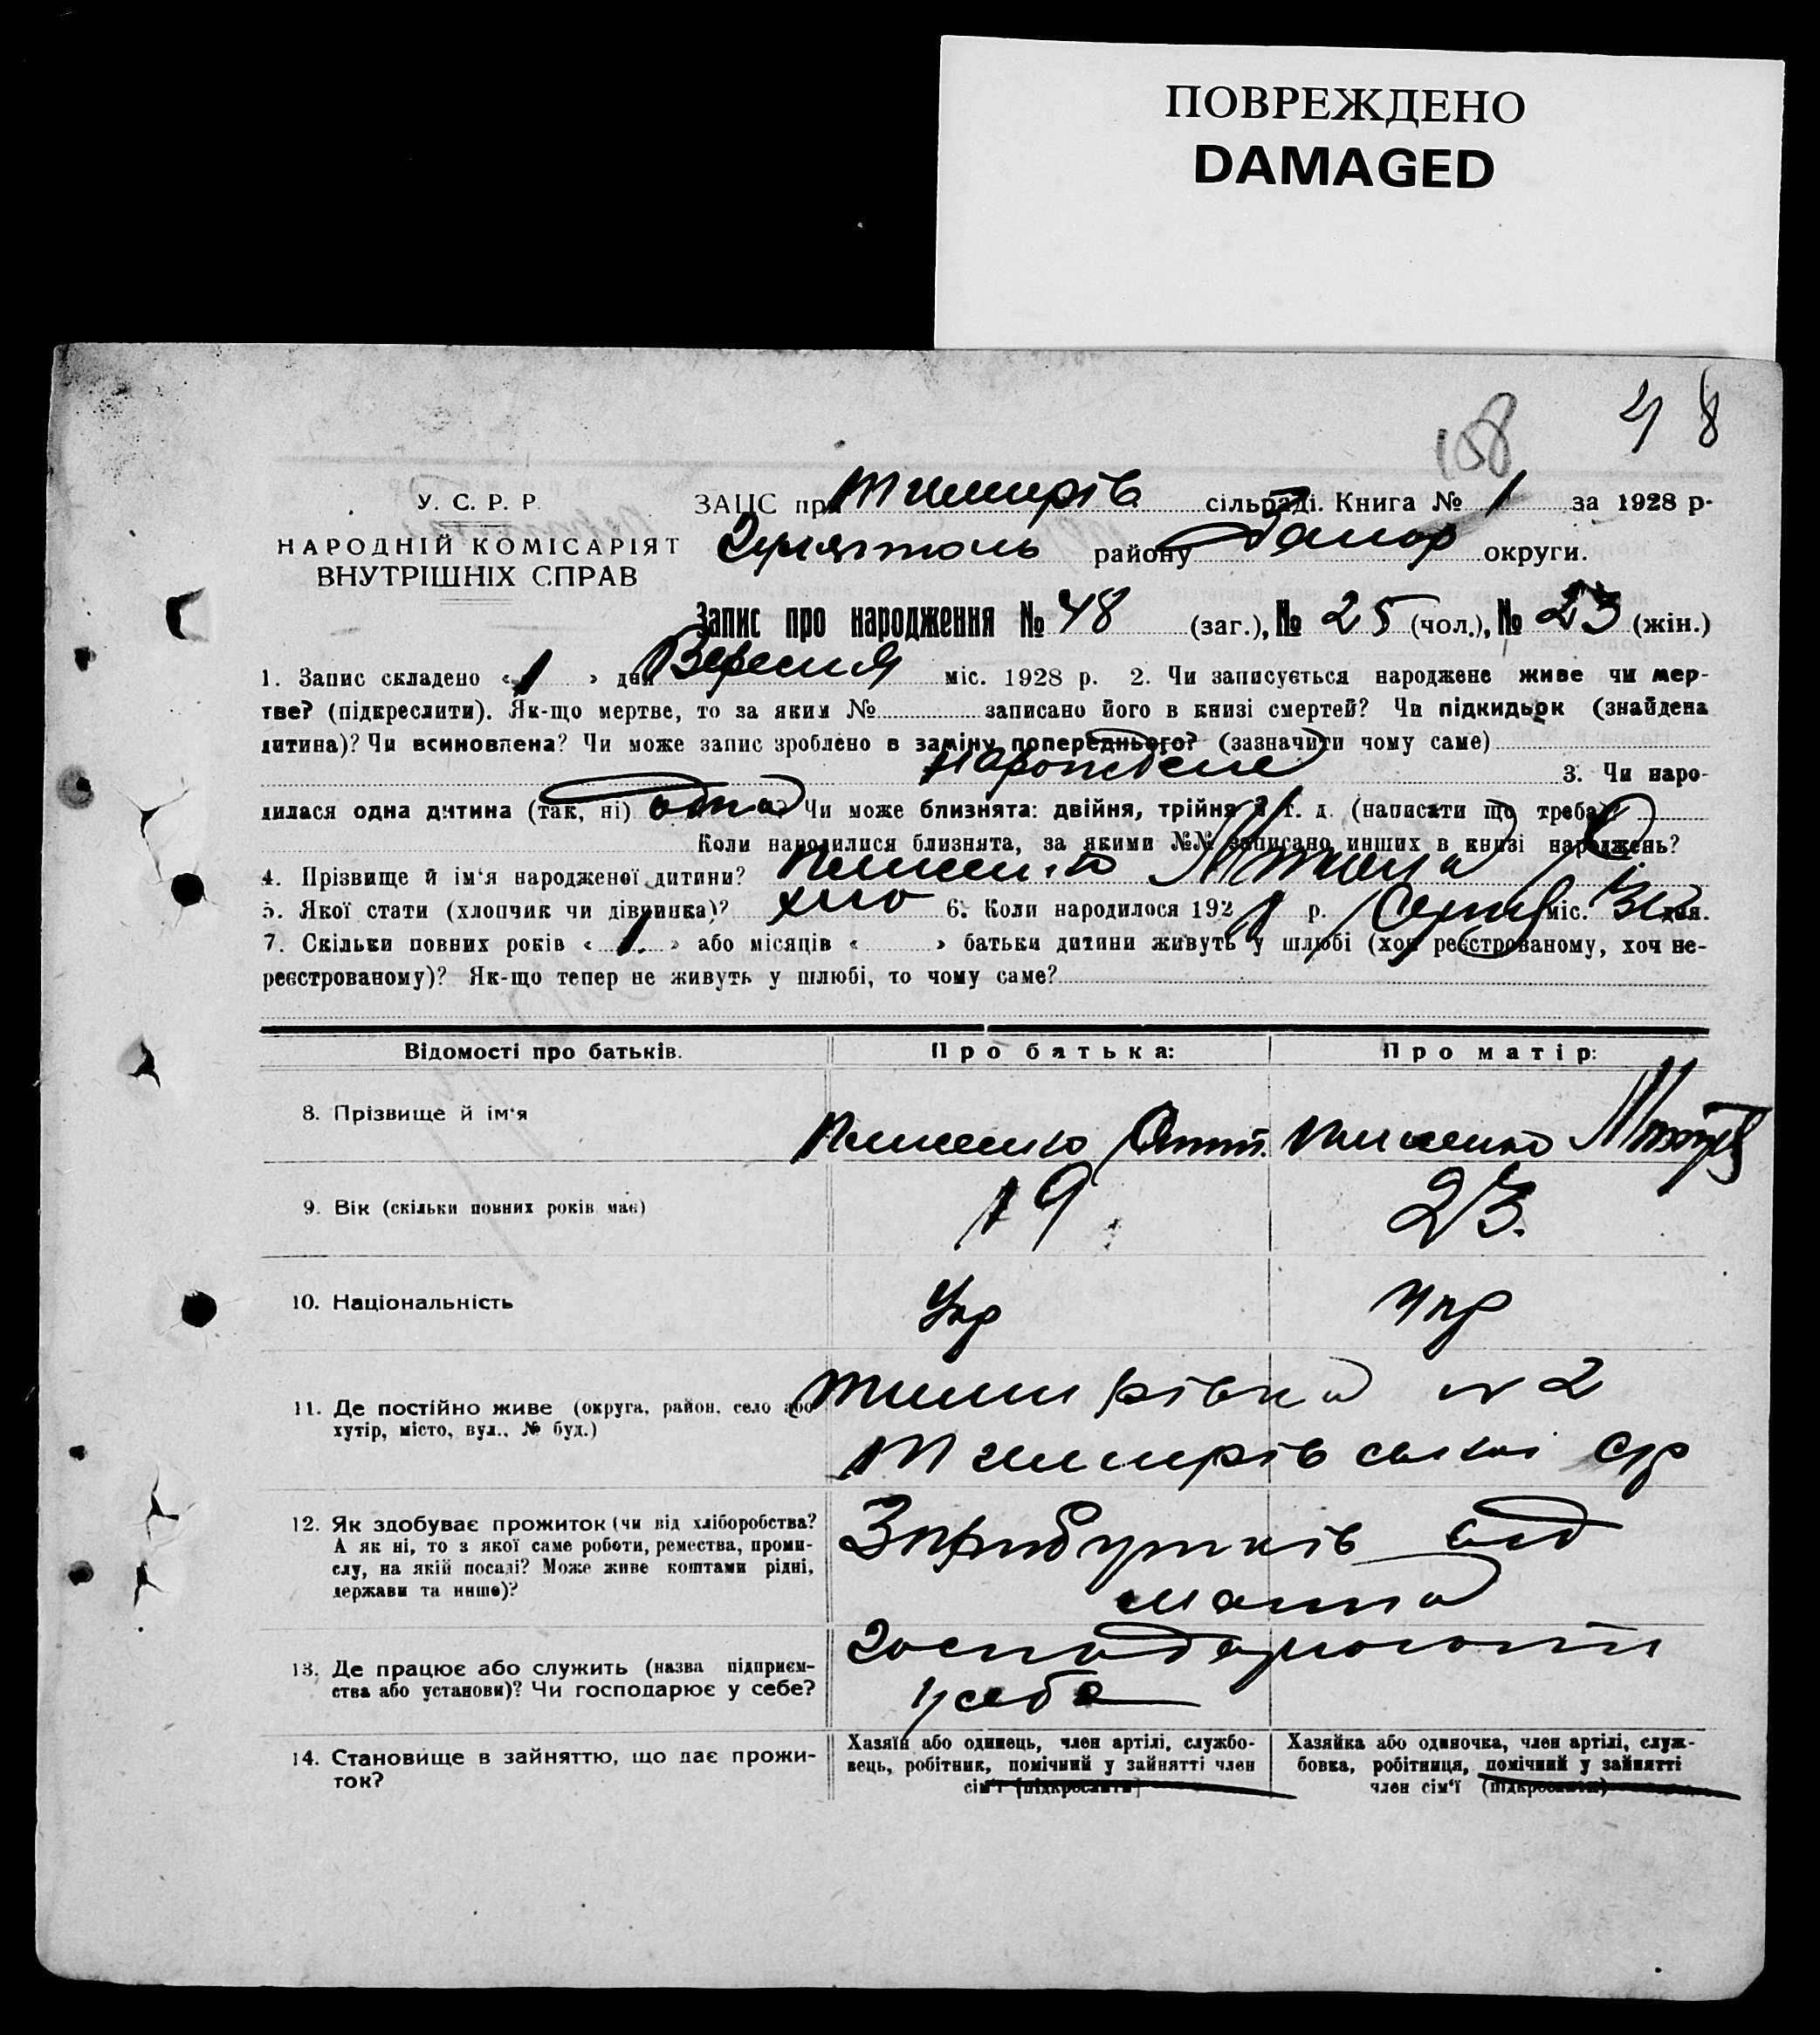 ПОВРЕЖДЕНО
DAMAGED
48
108
У. С. Р. Р.
НАРОДНІЙ КОМІСАРІЯТ
ВНУТРІШНІХ СПРАВ
ЗАЦС при Тимирів сільраді. Книга № 1 за 1928 р.
району округи.
Запис про народження № 48 (заг.), № 25 (чол.), № 23 (жін.)
1. Запис складено «1» дня Вересня міс. 1928 р. 2. Чи записується народжене живе чи мер-
тве? (підкреслити). Як-що мертве, то за яким № записано його в книзі смертей? Чи підкидьок (знайдена
дитина)? Чи всиновлена? Чи може запис зроблено в заміну попереднього? (зазначити чому саме)
3. Чи наро-
дилася одна дитина (так, ні) одна? Чи може близнята: двійня, трійня і т. д. (написати що треба)?
Коли народилися близнята, за якими №№ записано инших в книзі народжень?
4. Прізвище й ім'я народженої дитини?
5. Якої стати (хлопчик чи дівчинка)? хло 6. Коли народилося 1928 р. Серп міс. 30 дня.
7. Скільки повних років «1» або місяців « » батьки дитини живуть у шлюбі (хоч реєстрованому, хоч не-
реєстрованому)? Як-що тепер не живуть у шлюбі, то чому саме?
Відомості про батьків. Про батька: Про матір:
8. Прізвище й ім'я
9. Вік (скільки повних років має) 19 23.
10. Національність Укр Укр
11. Де постійно живе (округа, район, село або Тимирівка № 2
хутір, місто, вул., № буд.) Тимирівської с/р
12. Як здобуває прожиток (чи від хліборобства?
А як ні, то з якої саме роботи, ремества, проми-
слу, на якій посаді? Може живе коштами рідні,
держави та инше)?
13. Де працює або служить (назва підприєм-
ства або установи)? Чи господарює у себе? у себе
14. Становище в зайняттю, що дає прожи-
ток?
Хазяїн або одинець, член артілі, службо-
вець, робітник, помічний у зайнятті член
сім'ї (підкреслити)
Хазяйка або одиночка, член артілі, служ-
бовка, робітниця, помічний у зайнятті
член сім'ї (підкреслити)